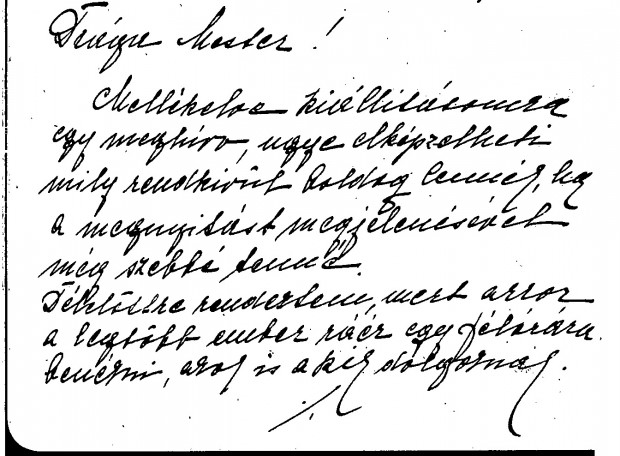 Drága Mester!
Mellékelve kiállitásomra
egy meghivó, ugye elképzelheti
mily rendkivül boldog lennék, ha
a megnyitást megjelenésével
még szebbé tenné.
Déltőlre rendeztem, mert akkor
a legtöbb ember ráér egy félórára
benézni, azok is akik dolgoznak.
./.